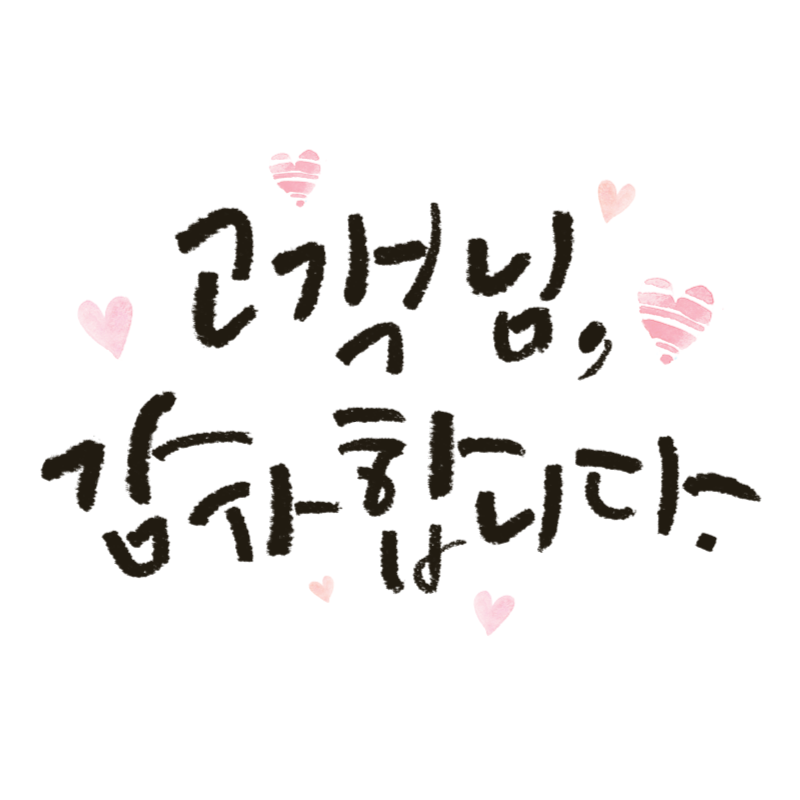 고객님,
감사합니다.